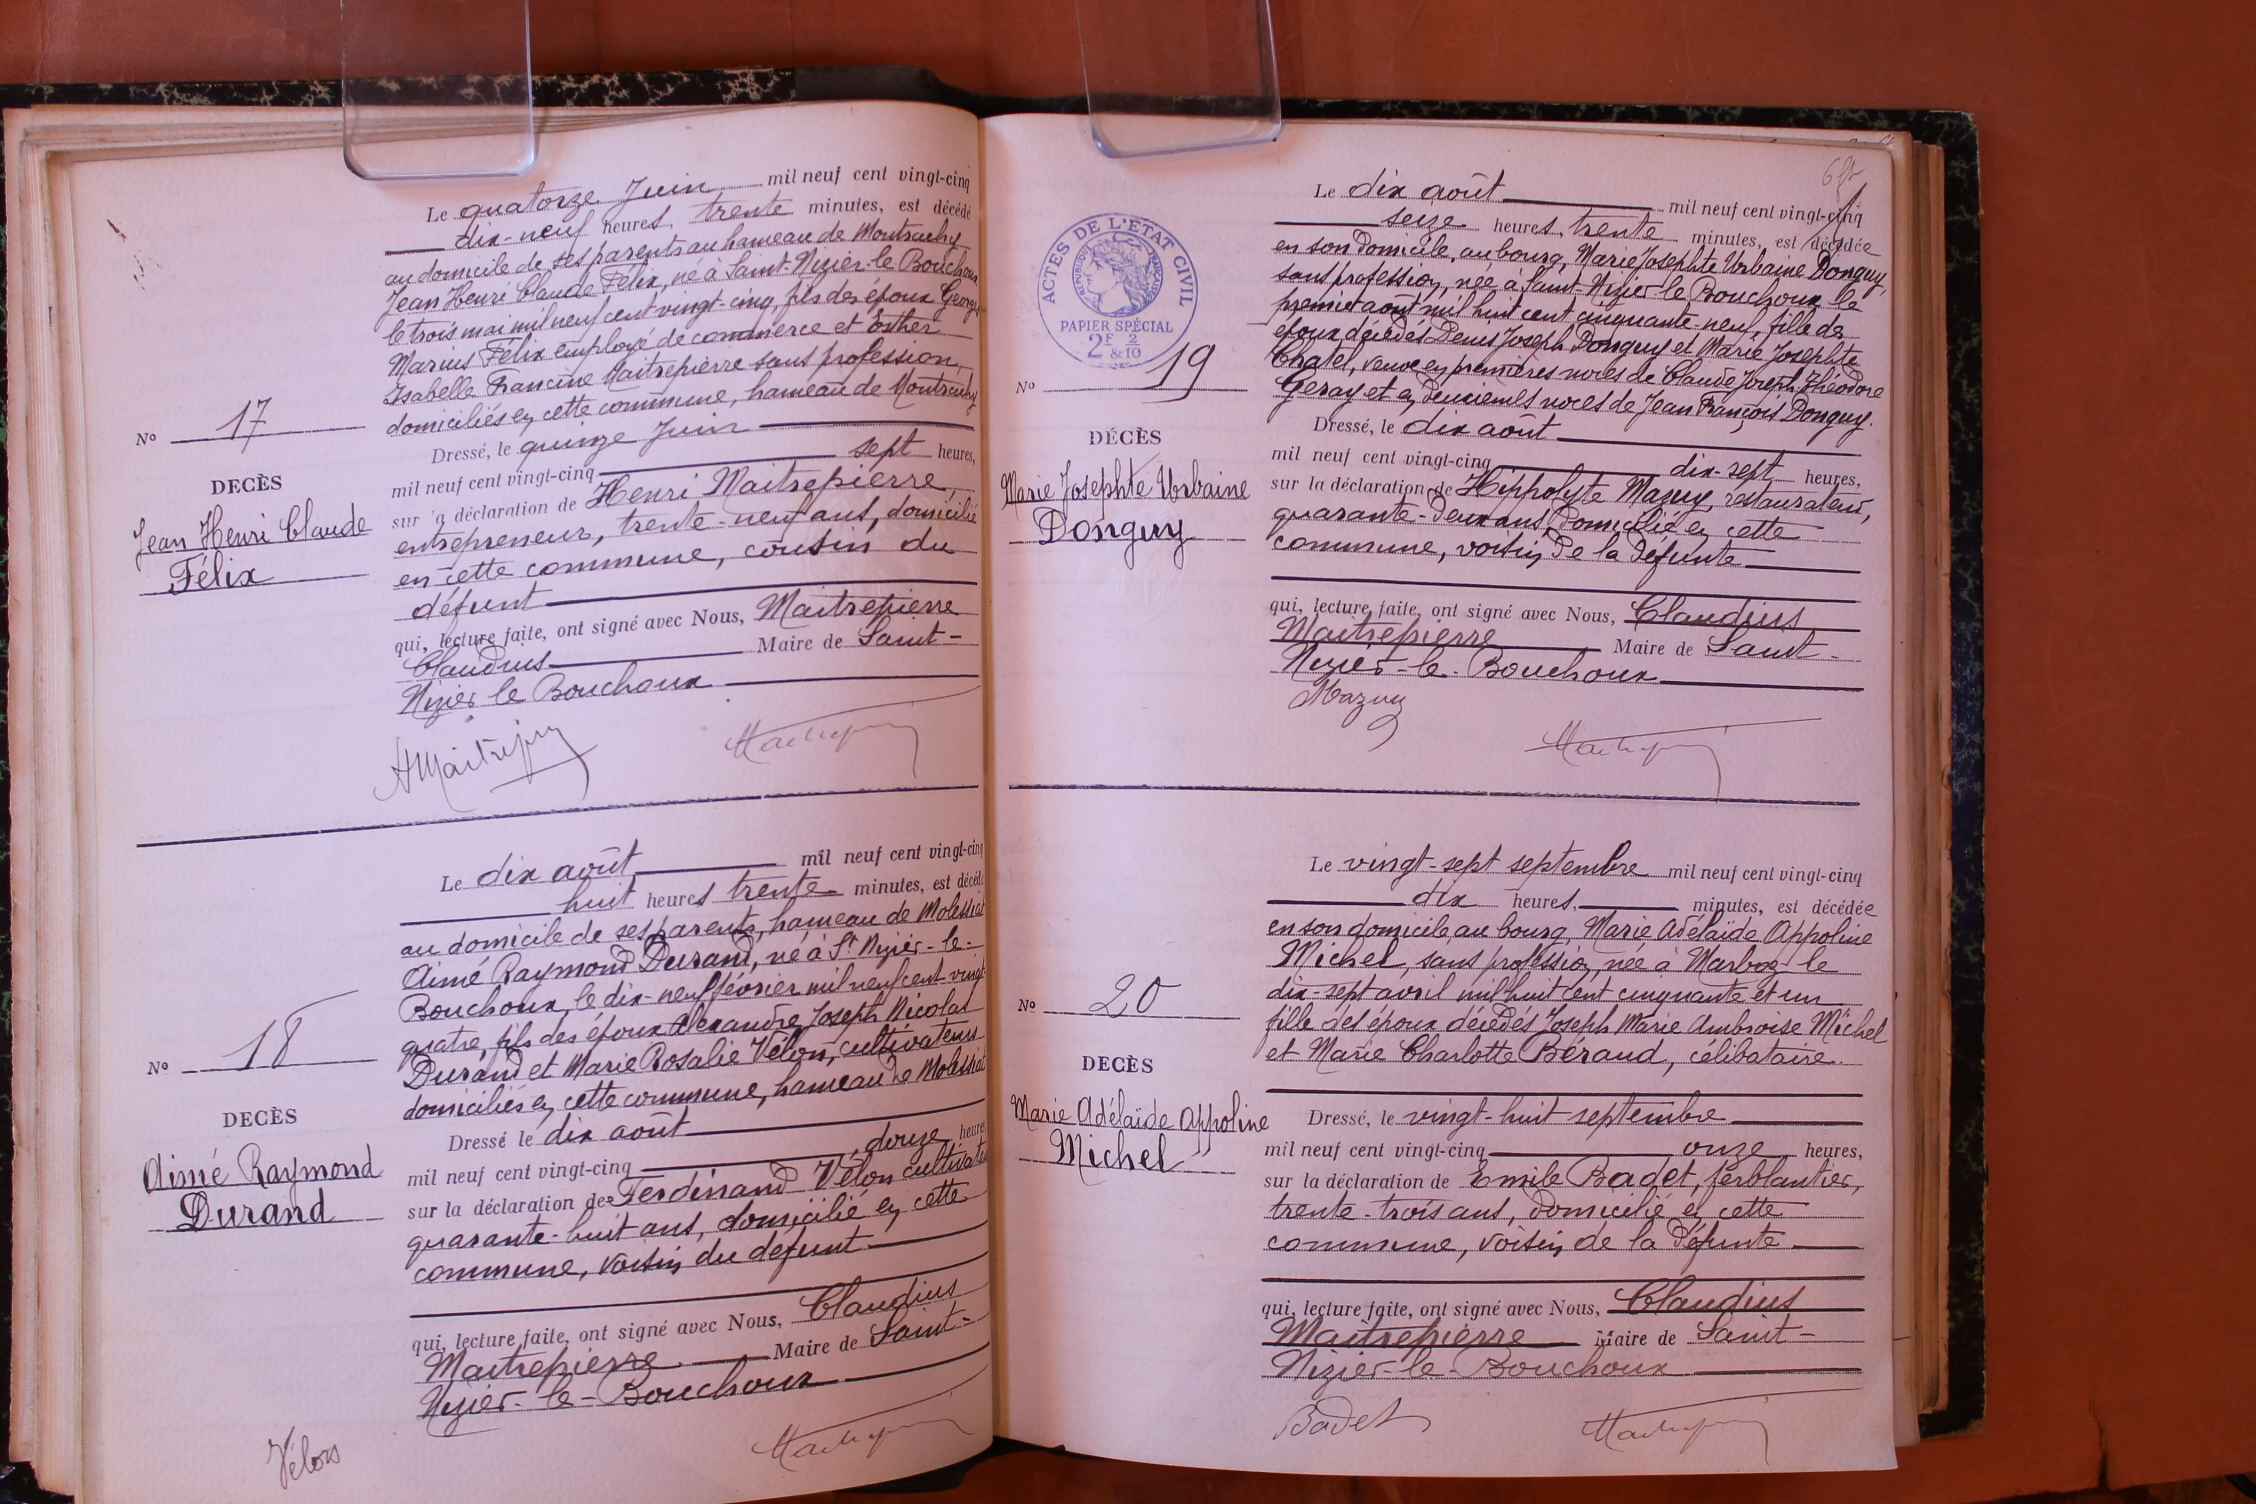 Le quatorze Juin mil neuf cent vingt-cinq
dix-neuf heures, trente minutes, est décédé
au domicile de ses parents au hameau de Montrachy
Jean Henri Claude Félix, né à Saint-Nizier-le Bouchoux
le trois mai mil neuf cent vingt-cinq, fils des époux Georges
Marius Félix employé de commerce et Esther
Isabelle Francine Maitrepierre sans profession,
domiciliés en cette commune, hameau de Montrachy
Nº 17
DECÈS
Jean Henri Claude
Félix
Dressé, le quinze Juin
mil neuf cent vingt-cinq sept heures,
sur la déclaration de Henri Maitrepierre,
entrepreneur, trente-neuf ans, domicilié
en cette commune, cousin du
défunt
qui, lecture faite, ont signé avec Nous, Maitrepierre
Claudius Maire de Saint-
Nizier le Bouchoux
HMaitrepierre
Maitrepierre
Le dix août mil neuf cent vingt-cinq
huit heures trente minutes, est décédé
au domicile de ses parents, hameau de Molessiat
Aimé Raymond Durand, né à St Nizier-le-
Bouchoux, le dix-neuf février mil neuf cent vingt-
quatre, fils des époux Alexandre Joseph Nicolas
Durand et Marie Rosalie Vélon, cultivateurs
domiciliés en cette commune, hameau de Molessiat
Nº 18
DECÈS
Aimé Raymond
Durand
Dressé le dix août
mil neuf cent vingt-cinq douze heures
sur la déclaration de Ferdinand Vélon cultivateur
quarante-huit ans, domicilié en cette
commune, voisin du defunt
qui, lecture faite, ont signé avec Nous, Claudius
Maitrepierre Maire de Saint-
Nizier-le-Bouchoux
Vélon
Maitrepierre
ACTES DE L'ÉTAT CIVIL
RÉPUBLIQUE FRANÇAISE
PAPIER SPÉCIAL
2F 2
&10
Le dix août mil neuf cent vingt-cinq
seize heures, trente minutes, est décédée
en son domicile, au bourg, Marie Josephte Urbaine Donguy,
sans profession, née à Saint-Nizier-le Bouchoux le
premier août mil huit cent cinquante-neuf, fille des
époux décédés Denis Joseph Donguy et Marie Josephte
Chatel, veuve en premières noces de Claude Joseph Théodore
Geray et en deuxièmes noces de Jean François Donguy.
Nº 19
DÉCÈS
Marie Josephte Urbaine
Donguy
Dressé, le dix août
mil neuf cent vingt-cinq dix-sept heures,
sur la déclaration de Hippolyte Mazuy, restaurateur,
quarante-deux ans, domicilié en cette
commune, voisin de la défunte
qui, lecture faite, ont signé avec Nous, Claudius
Maitrepierre Maire de Saint-
Nizier-le-Bouchoux
Mazuy
Maitrepierre
Le vingt-sept septembre mil neuf cent vingt-cinq
dix heures, minutes, est décédée
en son domicile, au bourg, Marie Adélaïde Appoline
Michel, sans profession, née à Marboz le
dix-sept avril mil huit cent cinquante et un
fille des époux décédés Joseph Marie Ambroise Michel
et Marie Charlotte Béraud, célibataire.
Nº 20
DÉCÈS
Marie Adélaïde Appoline
Michel
Dressé, le vingt-huit septembre
mil neuf cent vingt-cinq onze heures,
sur la déclaration de Emile Badet, ferblantier,
trente-trois ans, domicilié en cette
commune, voisin de la défunte
qui, lecture faite, ont signé avec Nous, Claudius
Maitrepierre Maire de Saint-
Nizier-le-Bouchoux
Badet
Maitrepierre